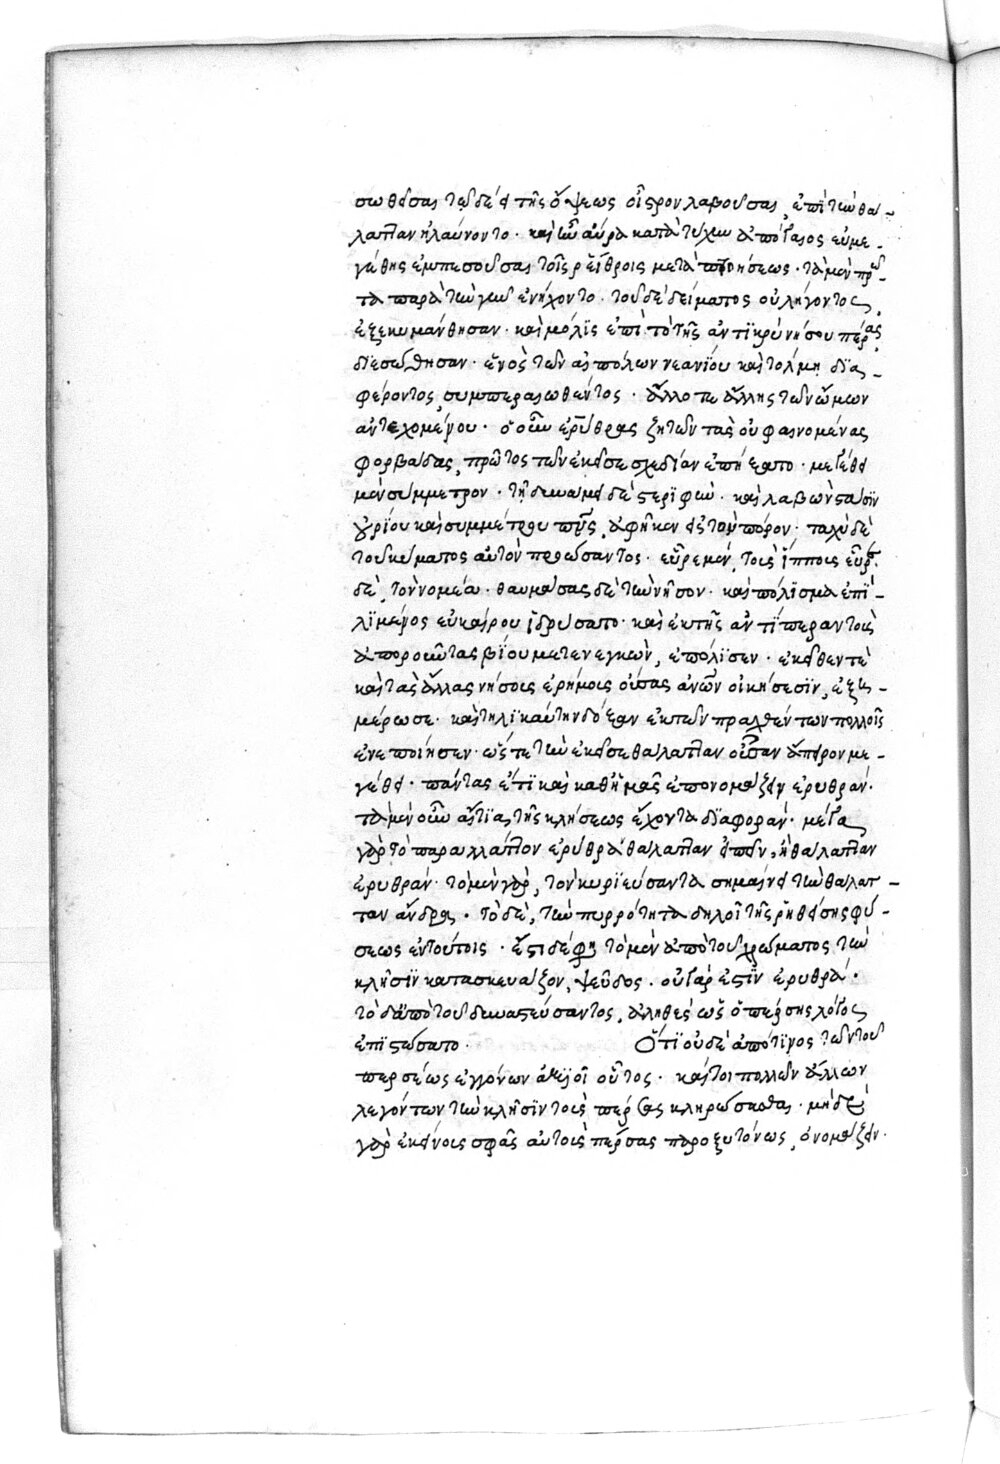 σωθεῖσαι τοῦ δέ τῆς ὄψεως οἶστρον λαβοῦσαι, ἐπὶ τὴν θα-
λατταν ἠλαύνοντο. καὶ ἦν αὔρα κατὰ τύχην ἀπὸ γαίος εὐμε-
γέθης ἐμπεσοῦσαι τοῖς ῥείθροις μετὰ πτοήσεως. τὰ μὲν πρῶ-
τα παρὰ τὴν γῆν ἐνήχοντο. τοῦ δὲ δείματος οὐ λήγοντος,
ἐξεκυμάνθησαν. καὶ μόλις ἐπὶ τὸ τῆς ἀντικρὺ νήσου πέρας
διεσώθησαν. ἑνὸς τῶν αἰπόλων νεανίου καὶ τόλμῃ δια-
φέροντος, συμπεραιωθέντος. ἄλλοτε ἄλλης τῶν ὤμων
ἀντεχομένου. ὁ οὖν ἐρύθρας ζητῶν τὰς οὐ φαινομένας
φορβάδας, πρῶτος τῶν ἐκεῖσε σχεδίαν ἐπήξατο. μεγέθει
μὲν σύμμετρον. τῇ δυνάμει δὲ στερίφην. καὶ λαβὼν
οὐρίου καὶ συμμέτρου πνς, ἀφῆκεν εἰς τὸν πόρον. ταχὺ δὲ
τοῦ κύματος αὐτὸν προώσαντος. εὗρε μὲν, τοὺς ἵππους εὗρε
δὲ, τὸν νομέα. θαυμάσας δὲ τὴν νῆσον. καὶ πόλισμα ἐπὶ-
λιμένος εὐκαίρου ἱδρύσατο. καὶ ἐκ τῆς ἀντιπέραν τοὺς
ἀποροῦντας βίου μετενεγκὼν, ἐπόλισεν. ἐκεῖθεν τὲ
καὶ τὰς ἄλλας νήσους ἐρήμους οὔσας ἀνων οἰκήσεσιν, ἐξη-
μέρωσε. καὶ τηλικαύτην δόξαν ἐκ τῶν πραχθέντων πολλοῖς
ἐνεποίησεν. ὥστε τὴν ἐκεῖσε θάλατταν οὖσαν ἄπειρον με-
γέθει. πάντας ἔτι καὶ καθἡμᾶς ἐπονομάζειν ἐρυθράν.
τὰ μὲν οὖν αἴτια, τῆς κλήσεως ἔχοντα διαφοράν. μέγα
γὰρ τὸ παραλλάττον ἐρύθρα θάλατταν εἰπεῖν, ἢ θάλατταν
ἐρυθράν. τὸ μὲν γὰρ, τὸν κυριεύσαντα σημαίνει τὴν θαλατ-
ταν ἄνδρα. τὸ δὲ, τὴν πυρρότητα δηλοῖ τῆς ῥηθείσης φύ-
σεως ἐν τούτοις. ἔστι δέ φη τὸ μὲν ἀπὸ τοῦ χρώματος τὴν
κλῆσιν κατασκευάζον, ψεῦδος. οὐ γάρ ἐστιν ἐρυθρά.
τὸ δ ἀπὸ τοῦ δυναστεύσαντος, ἀληθές ὡς ὁ πέρσης λόγος
ἐπιστώσατο. Ὅτι οὐδὲ ἀπό τινος τῶν τοῦ
περσέως ἐγγόνων ἀξιοῖ οὗτος. καί τοι πολλῶν ἄλλων
λεγόντων τὴν κλῆσιν τοὺς πέρσας κληρώσασθαι. μηδὲ
γὰρ ἐκείνους σφᾶς αὐτοὺς πέρσας παροξυτόνως, ὀνομάζειν.